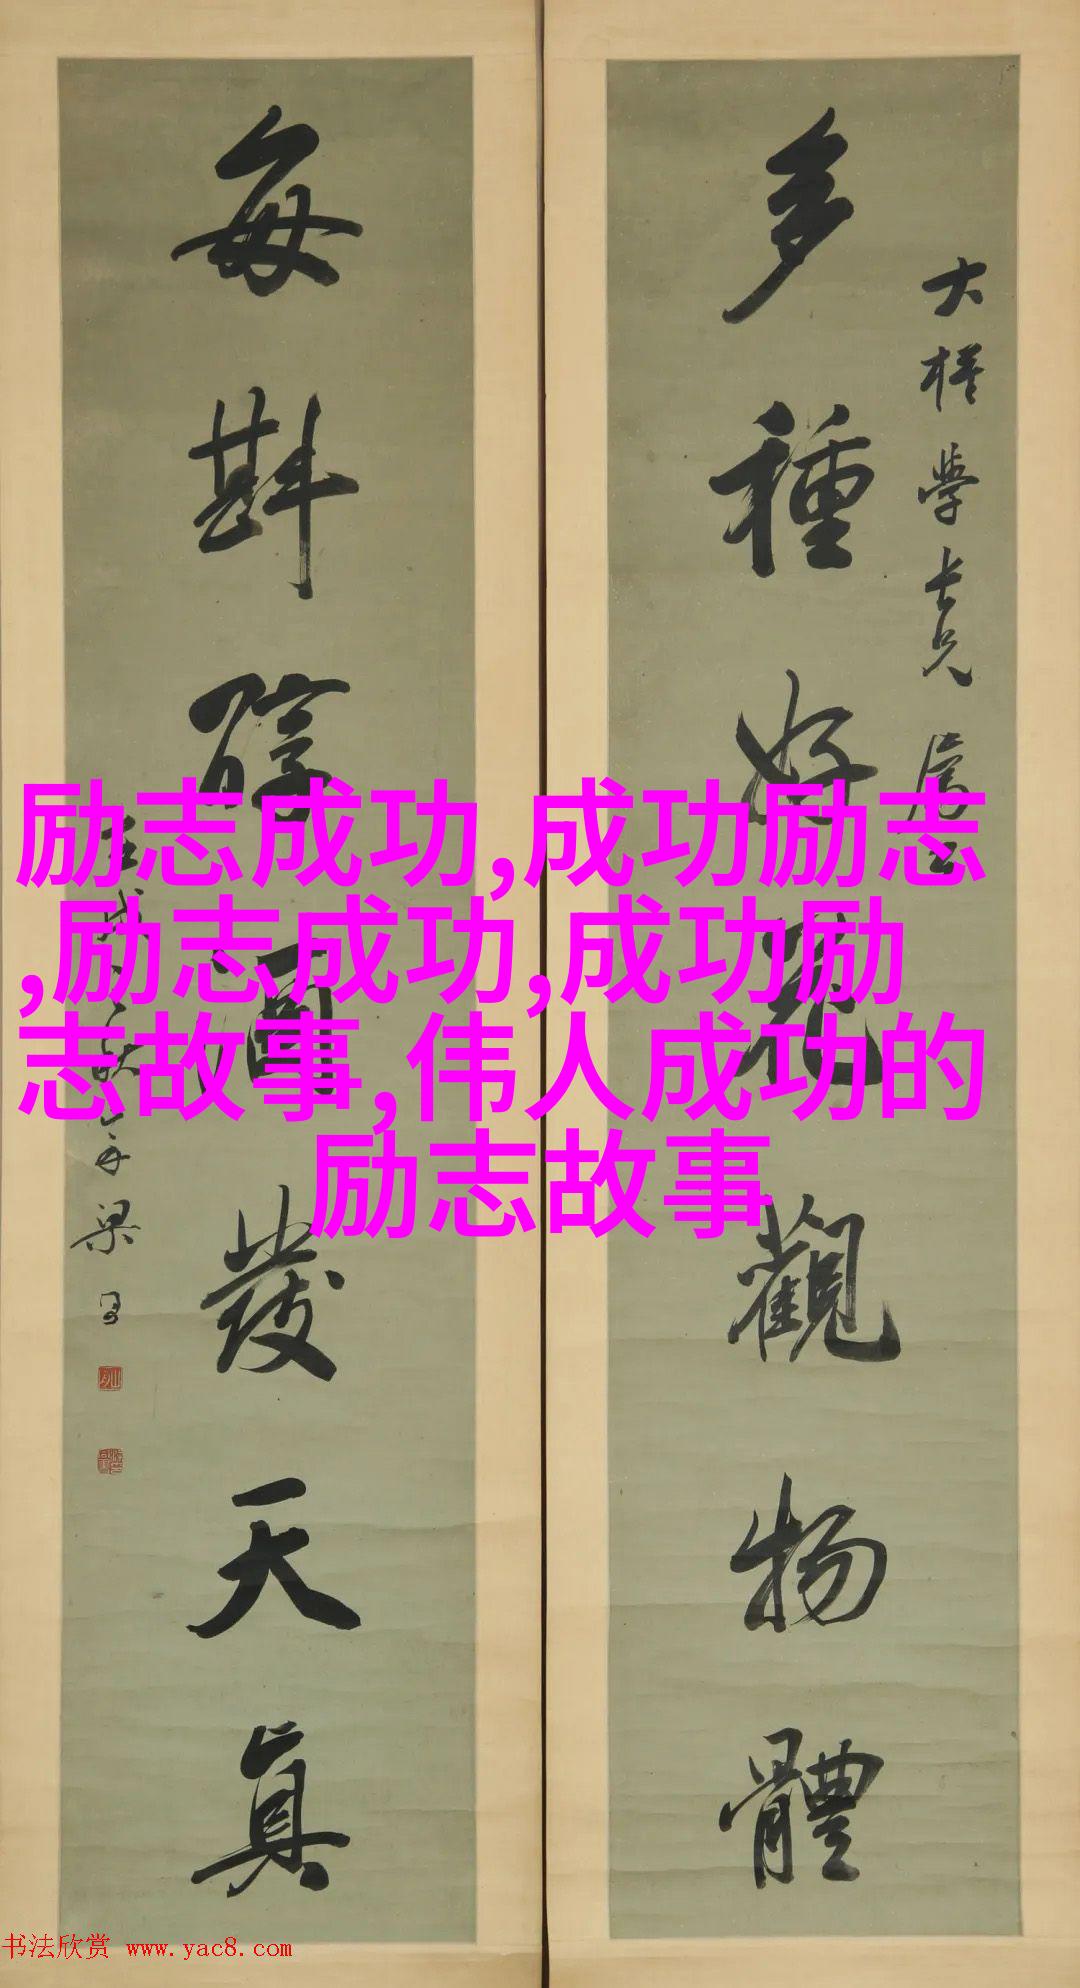 多種好花觀物體
大樣學長兄屬
每斟醇酒發天真
年梁
励志成功,成功励志
,励志成功,成功励
志故事,伟人成功的
励志故事
书法欣赏 www.yac8.com